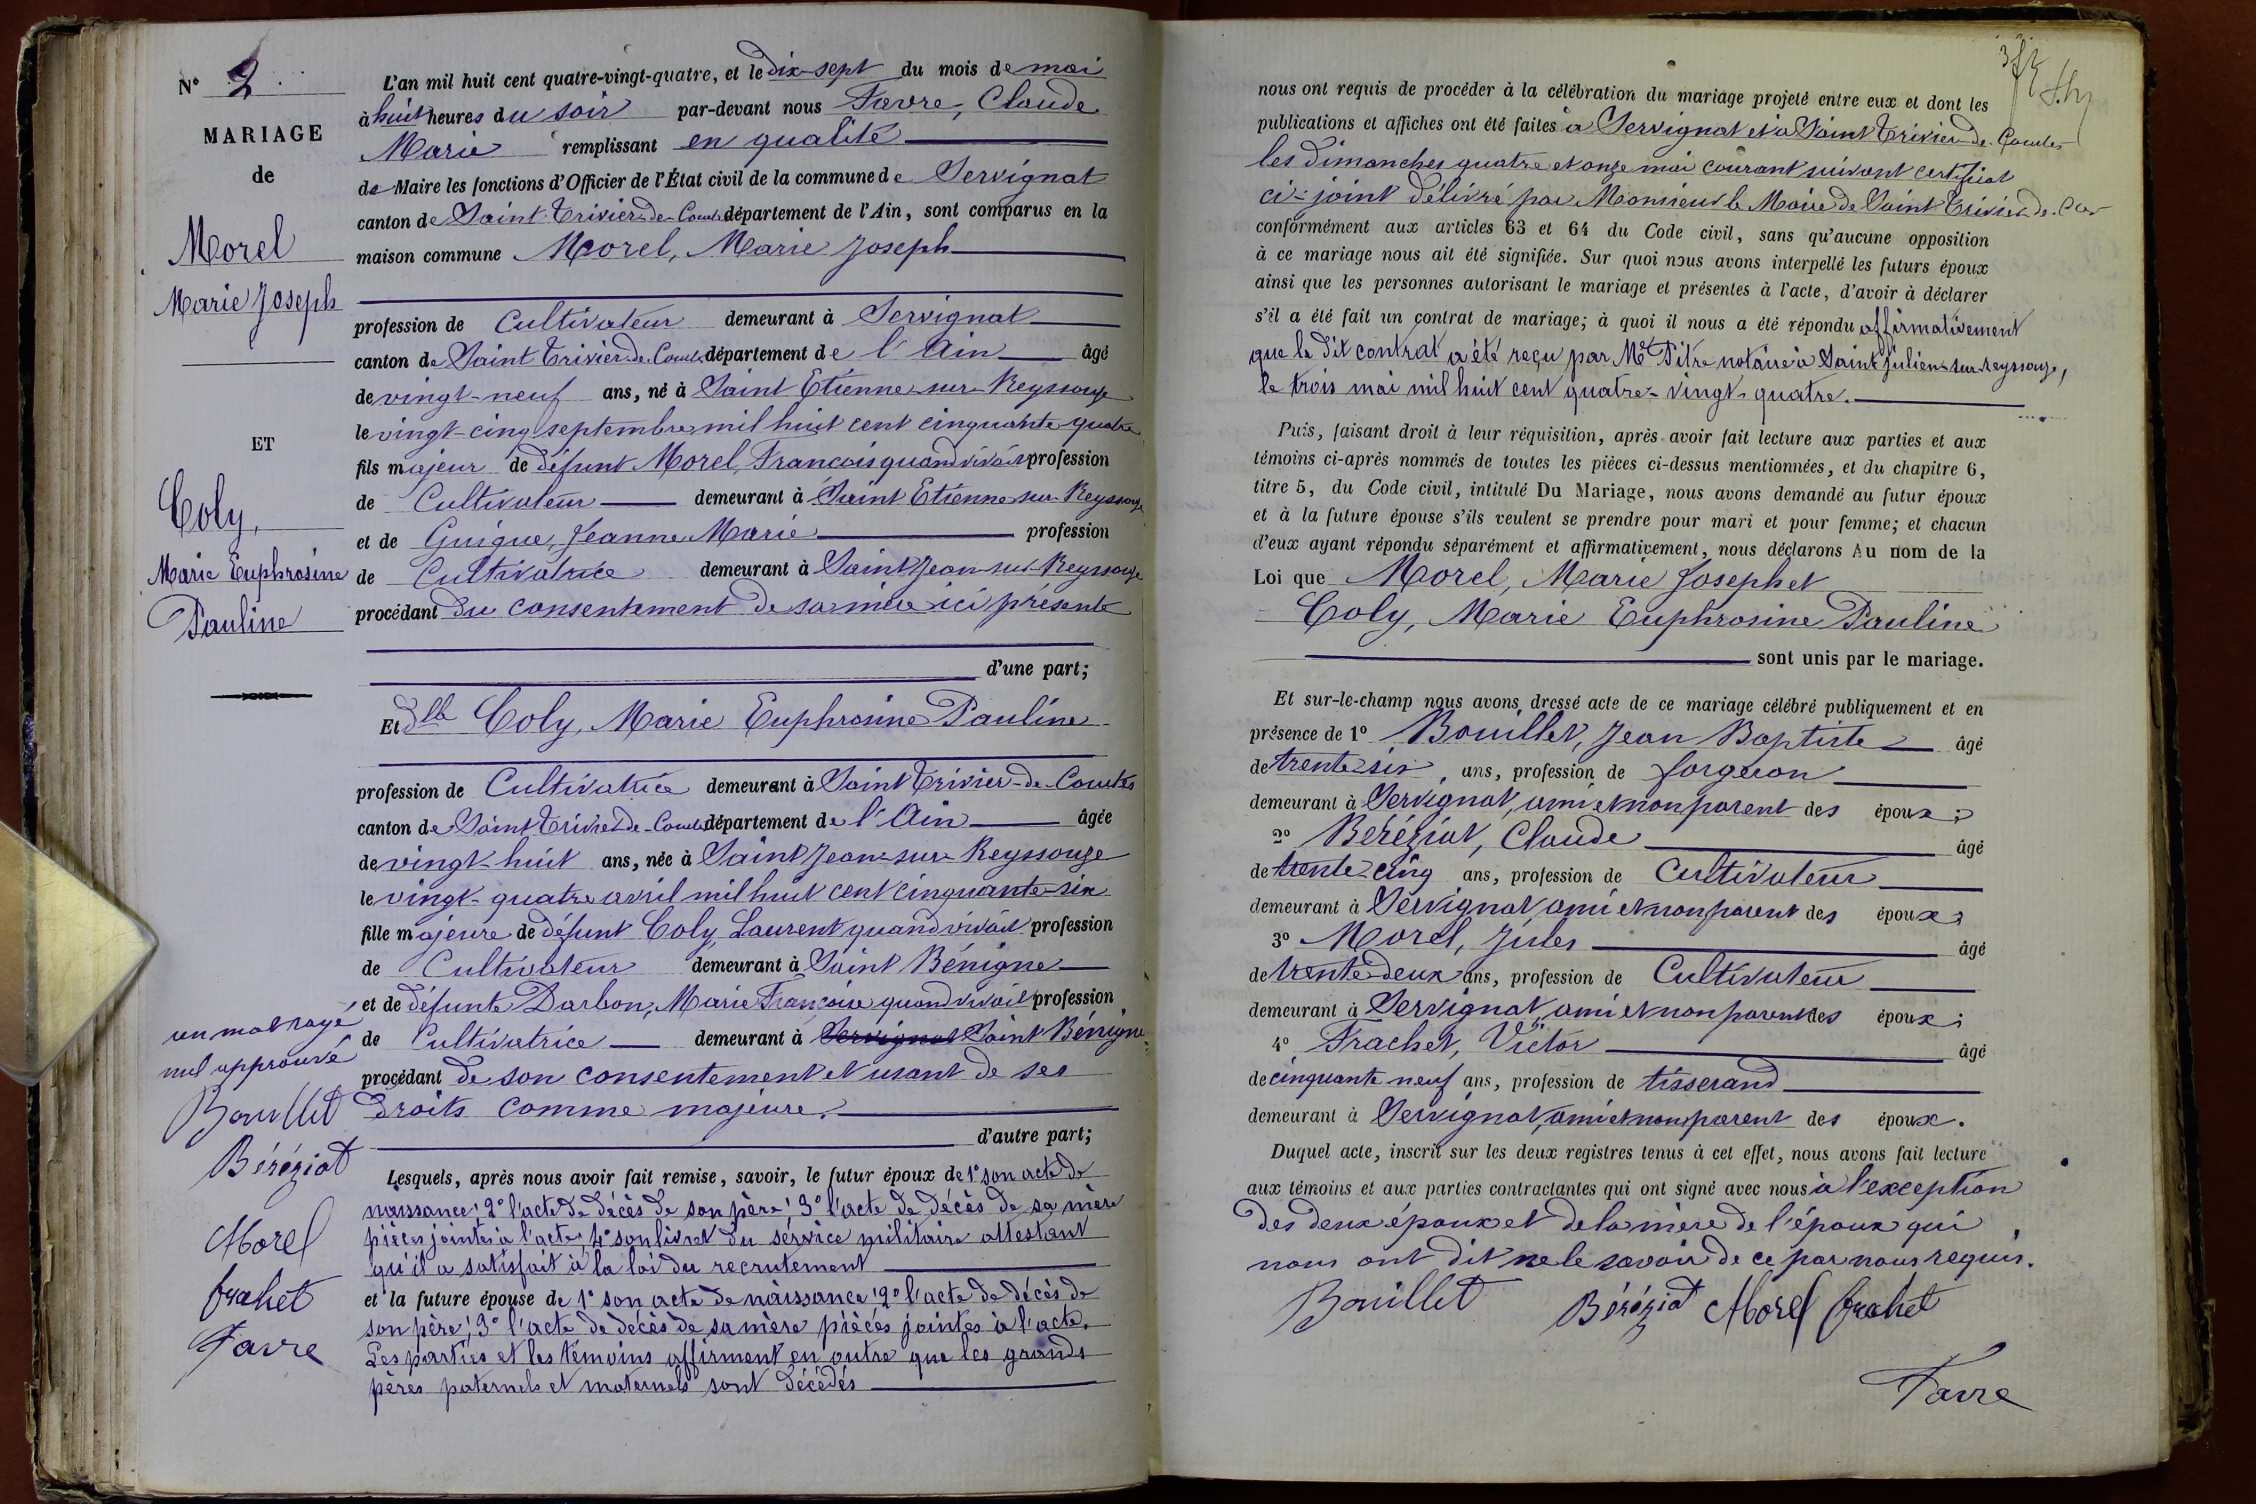 N° 2
MARIAGE
de
Morel
Marie Joseph
ET
Coly,
Marie Euphrosine
Pauline
un mot rayé
nul approuvé
Bouillet
Béréziat
Morel
frachet
Favre
L'an mil huit cent quatre-vingt-quatre, et le dix-sept du mois de mai
à huit heures du soir par-devant nous Favre, Claude
Marie remplissant en qualité
de Maire les fonctions d'Officier de l'État civil de la commune de Servignat
canton de Saint Trivier-de-Courtes département de l'Ain, sont comparus en la
maison commune Morel, Marie Joseph
profession de Cultivateur demeurant à Servignat
canton de Saint Trivier-de-Courtes département de l'Ain âgé
de vingt-neuf ans, né à Saint Etienne-sur-Reyssouze
le vingt-cinq septembre mil huit cent cinquante quatre
fils majeur de défunt Morel, François quand vivait profession
de Cultivateur demeurant à Saint Etienne sur-Reyssouze
et de Guigue, Jeanne Marie profession
de Cultivatrice demeurant à Saint Jean-sur-Reyssouze
procédant du consentement de sa mère ici présente
d'une part;
Et Dlle Coly, Marie Euphrosine Pauline
profession de Cultivatrice demeurant à Saint Trivier-de-Courtes
canton de Saint Trivier-de-Courtes département de l'Ain âgée
de vingt-huit ans, née à Saint Jean-sur-Reyssouze
le vingt-quatre avril mil huit cent cinquante-six
fille majeure de défunt Coly, Laurent quand vivait profession
de Cultivateur demeurant à Saint Bénigne
et de défunte Darbon, Marie Françoise quand vivait profession
de Cultivatrice demeurant à Servignat Saint Bénigne
procédant de son consentement et usant de ses
droits comme majeure.
d'autre part;
Lesquels, après nous avoir fait remise, savoir, le futur époux de 1° son acte de
naissance; 2° l'acte de décès de son père; 3° l'acte de décès de sa mère
pièces jointes à l'acte; 4° son livret du service militaire attestant
qu'il a satisfait à la loi du recrutement
et la future épouse de 1° son acte de naissance; 2° l'acte de décès de
son père; 3° l'acte de décès de sa mère pièces jointes à l'acte.
Les parties et les témoins affirment en outre que les grands
pères paternels et maternels sont décédés
nous ont requis de procéder à la célébration du mariage projeté entre eux et dont les
publications et affiches ont été faites à Servignat et à Saint Trivier-de-Courtes
les dimanches quatre et onze mai courant suivant certificat
ci-joint délivré par Monsieur le Maire de Saint Trivier-de-Ctes
conformément aux articles 63 et 64 du Code civil, sans qu'aucune opposition
à ce mariage nous ait été signifiée. Sur quoi nous avons interpellé les futurs époux
ainsi que les personnes autorisant le mariage et présentes à l'acte, d'avoir à déclarer
s'il a été fait un contrat de mariage; à quoi il nous a été répondu affirmativement
que le dit contrat a été reçu par Me Pitre notaire à Saint Julien-sur-Reyssouze,
le trois mai mil huit cent quatre-vingt-quatre.
Puis, faisant droit à leur réquisition, après avoir fait lecture aux parties et aux
témoins ci-après nommés de toutes les pièces ci-dessus mentionnées, et du chapitre 6,
titre 5, du Code civil, intitulé Du Mariage, nous avons demandé au futur époux
et à la future épouse s'ils veulent se prendre pour mari et pour femme; et chacun
d'eux ayant répondu séparément et affirmativement, nous déclarons Au nom de la
Loi que Morel, Marie Joseph et
Coly, Marie Euphrosine Pauline
sont unis par le mariage.
Et sur-le-champ nous avons dressé acte de ce mariage célébré publiquement et en
présence de 1° Bouillet, Jean Baptiste âgé
de trente-six ans, profession de forgeron
demeurant à Servignat, ami et non parent des époux;
2° Béréziat, Claude âgé
de trente-cinq ans, profession de Cultivateur
demeurant à Servignat, ami et non parent des époux;
3° Morel, Jules âgé
de trente-deux ans, profession de Cultivateur
demeurant à Servignat, ami et non parent des époux;
4° Frachet, Victor âgé
de cinquante neuf ans, profession de tisserand
demeurant à Servignat, ami et non parent des époux.
Duquel acte, inscrit sur les deux registres tenus à cet effet, nous avons fait lecture
aux témoins et aux parties contractantes qui ont signé avec nous à l'exception
des deux époux et de la mère de l'époux qui
nous ont dit ne le savoir de ce par nous requis.
Bouillet Béréziat Morel frachet
Favre